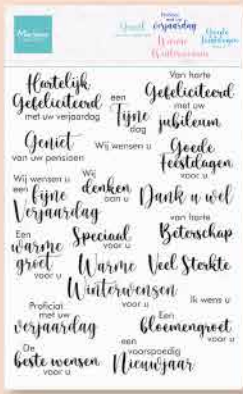 Marianne
Geniet
verjaardag
Warme
Winterwensen
Goede
Feestdagen
Hartelijk
Gefeliciteerd
met uw verjaardag
een
Fijne
dag
Van harte
Gefeliciteerd
met uw
jubileum
Geniet
van uw pensioen
Wij wensen u
Goede
Feestdagen
voor u
Wij wensen u
een fijne
Verjaardag
Wij
denken
aan u
Dank u wel
Een
warme
groet
voor u
Speciaal
voor u
van harte
Beterschap
Warme
Winterwensen
voor u
Veel Sterkte
Ik wens u
Proficiat
met uw
verjaardag
Een
bloemengroet
voor u
De
beste wensen
voor u
een
voorspoedig
Nieuwjaar